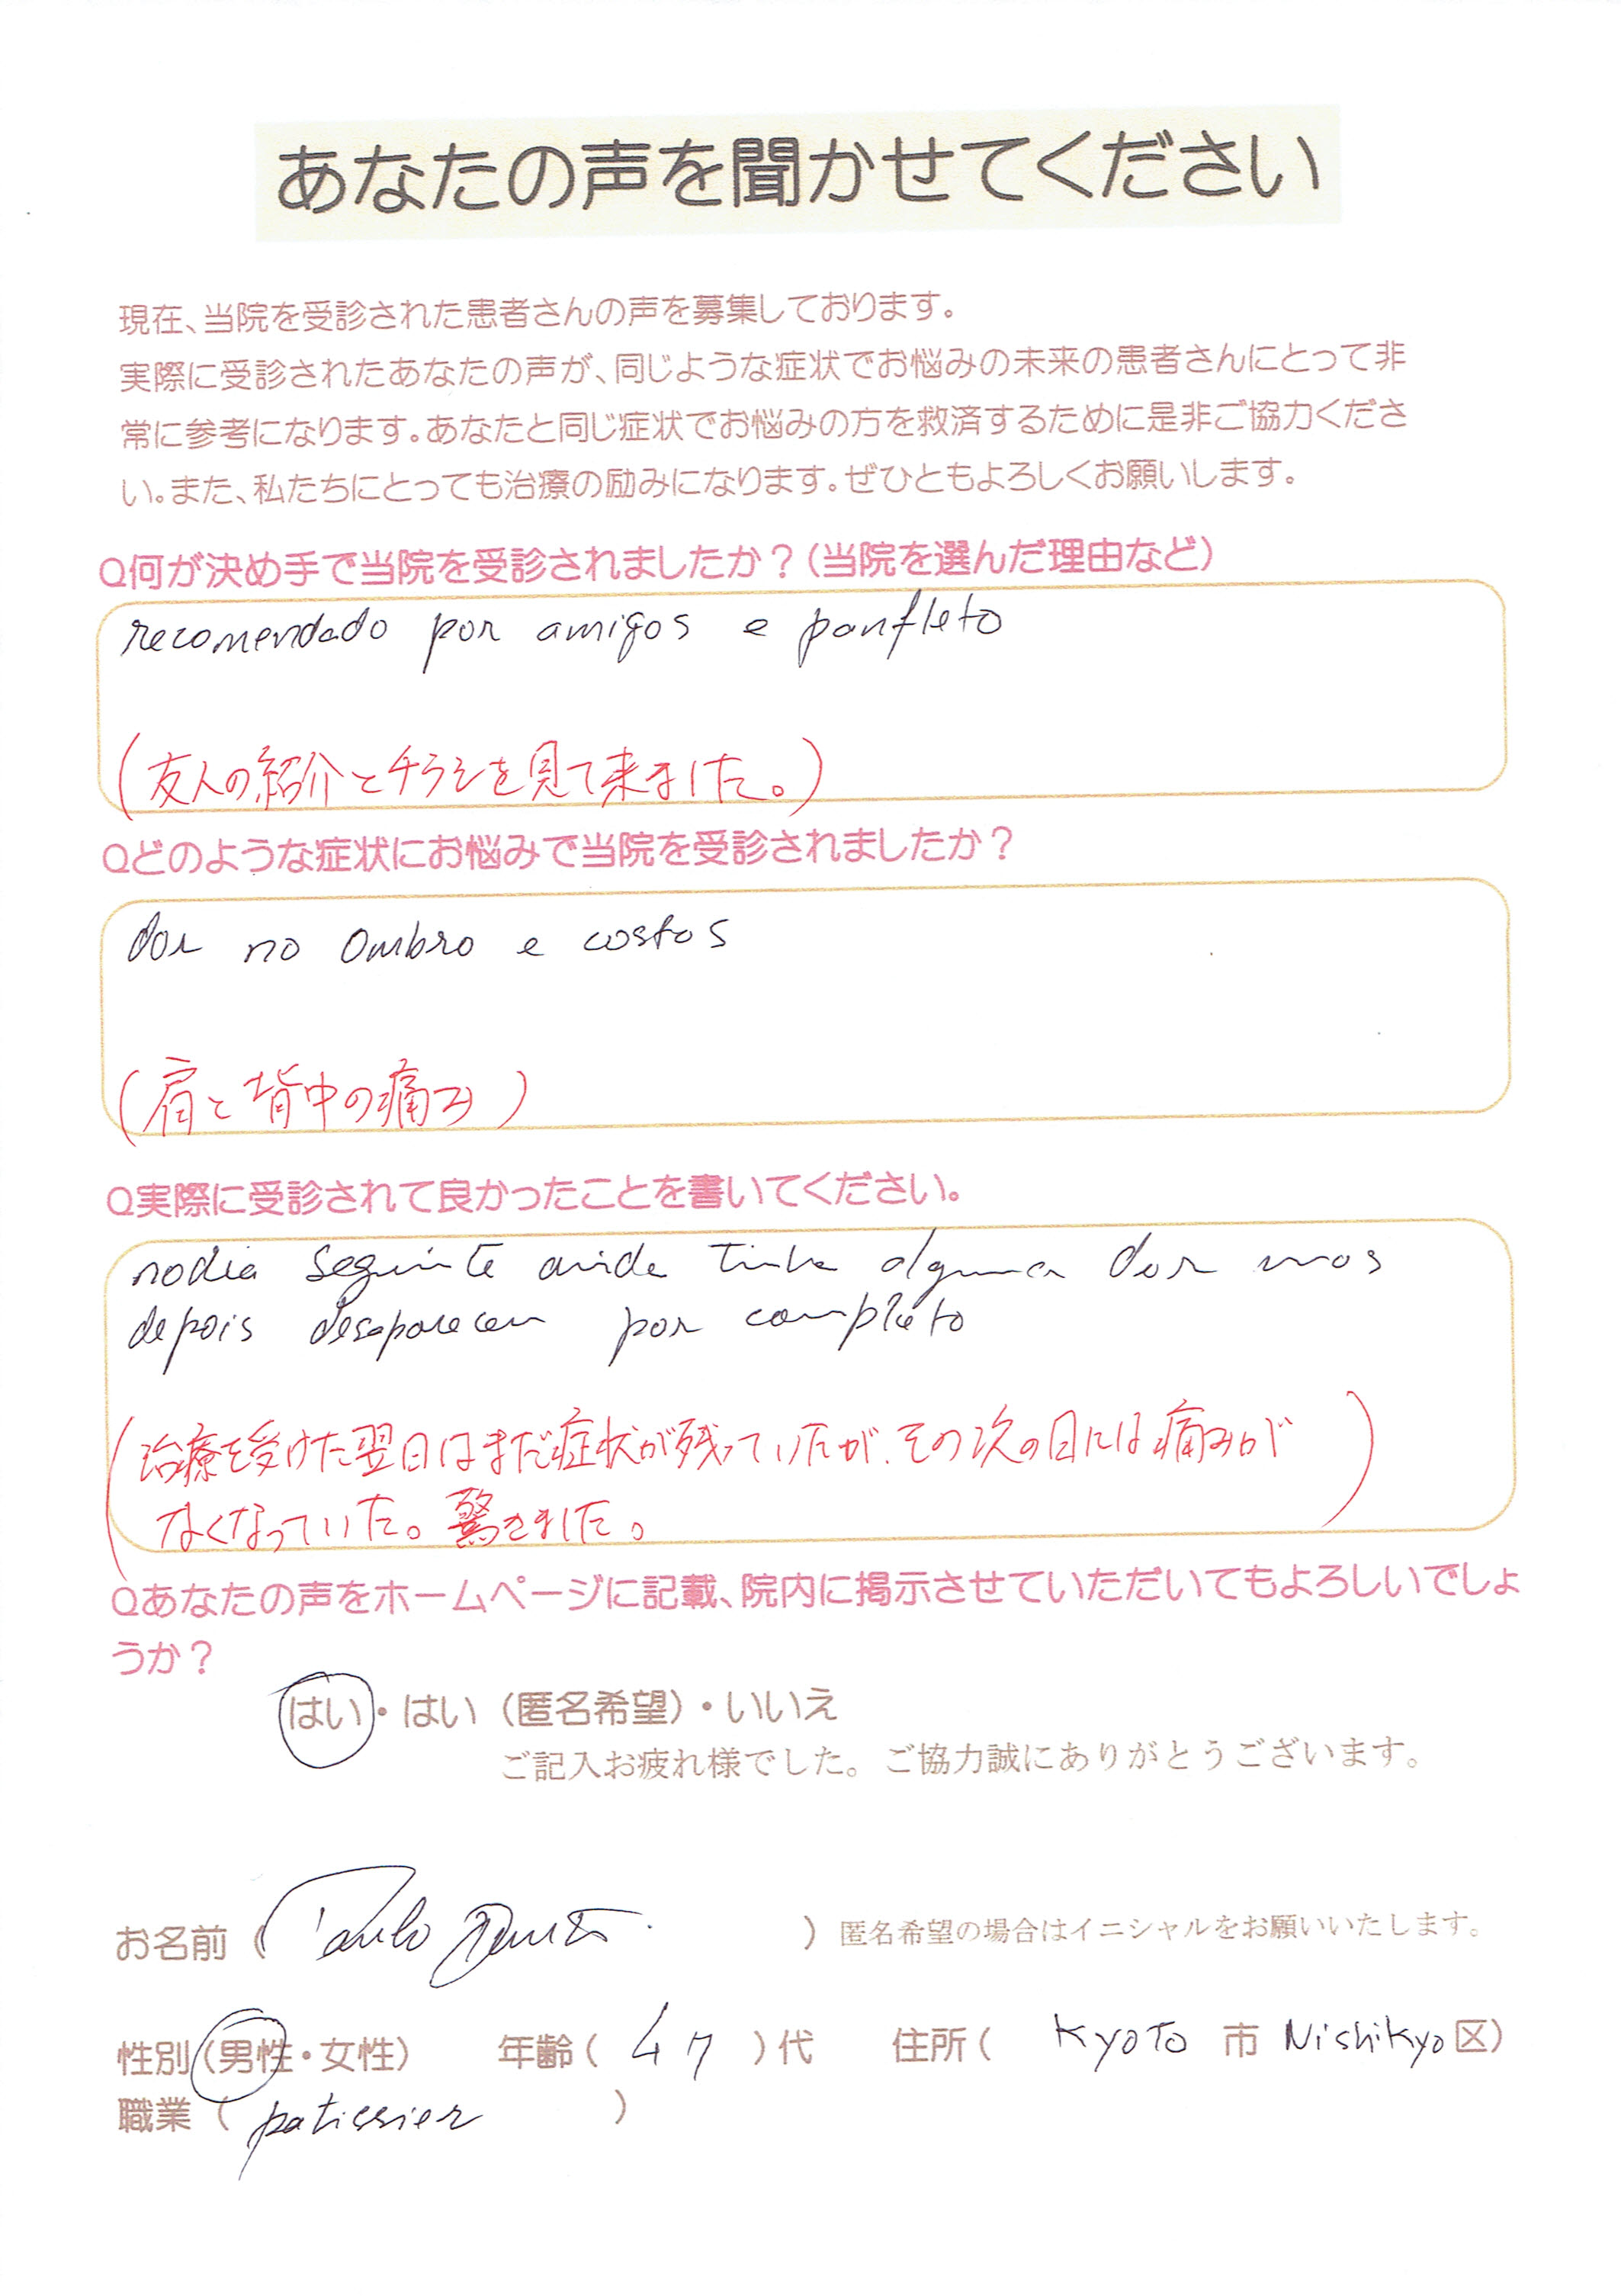 あなたの声を聞かせてください
現在、当院を受診された患者さんの声を募集しております。
実際に受診されたあなたの声が、同じような症状でお悩みの未来の患者さんにとって非
常に参考になります。あなたと同じ症状でお悩みの方を救済するために是非ご協力くださ
い。また、私たちにとっても治療の励みになります。ぜひともよろしくお願いします。
Q何が決め手で当院を受診されましたか？（当院を選んだ理由など）
recomendado por amigos e panfleto
（友人の紹介とチラシを見て来ました。）
Qどのような症状にお悩みで当院を受診されましたか？
dor no ombro e costas
（肩と背中の痛み）
Q実際に受診されて良かったことを書いてください。
no dia seguinte ainda tinha alguma dor mas
depois desapareceu por completo
（治療を受けた翌日はまだ症状が残っていたが、その次の日には痛みが
なくなっていた。驚きました。）
Qあなたの声をホームページに記載、院内に掲示させていただいてもよろしいでしょ
うか？
はい・はい（匿名希望）・いいえ
ご記入お疲れ様でした。ご協力誠にありがとうございます。
お名前（Paulo ）匿名希望の場合はイニシャルをお願いいたします。
性別（男性・女性） 年齢（47）代 住所（Kyoto 市 Nishikyo 区）
職業（patissier）